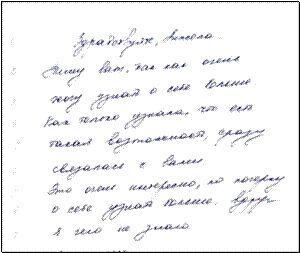 Здравствуйте, Анжела.
Пишу вам, так как очень
хочу узнать о себе больше.
Как только узнала, что есть
такая возможность, сразу
связалась с вами
Это очень интересно, по почерку
о себе узнать больше. Вдруг
я чего не знаю.